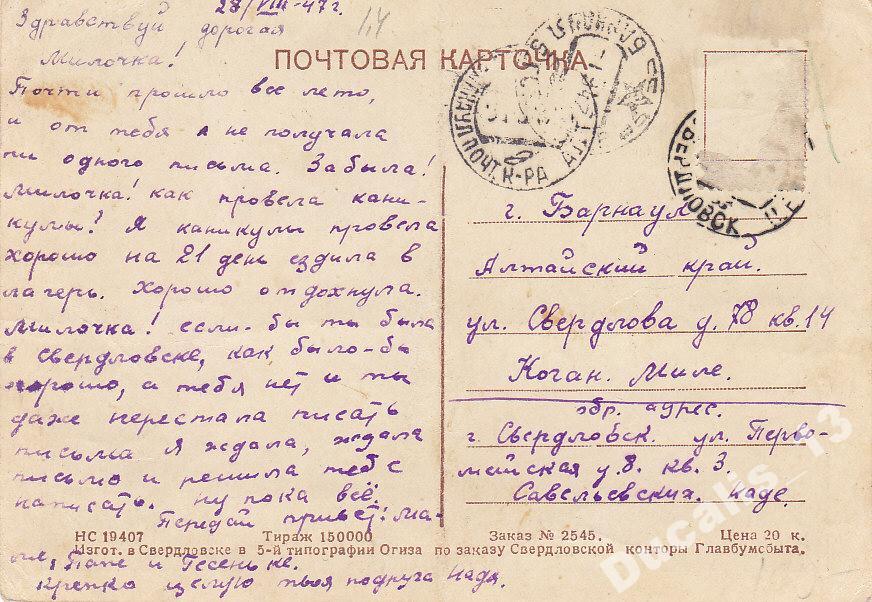 28/VIII-47 г.
Здравствуй дорогая
Милочка!
Почти прошло все лето,
и от тебя я не получала
ни одного письма. Забыла!
Милочка! как провела кани-
кулы? Я каникулы провела
хорошо на 21 день ездила в
лагерь. Хорошо отдохнула.
Милочка! если-бы ты была
в Свердловске, как было-бы
хорошо, а тебя нет и ты
даже перестала писать
письма я ждала, ждала
письмо и решила тебе
написать. ну пока всё.
Передай привет: ма-
ме, папе и Гесеньке.
Крепко целую твоя подруга Надя.
1,4
ПОЧТОВАЯ КАРТОЧКА
БАРНАУЛ
ПОЧТ. К-РА
АЛТ.
СВЕРДЛОВСК
г. Барнаул
Алтайский край.
ул. Свердлова д. 78 кв. 14
Коган. Миле.
обр. адрес.
г. Свердловск. ул. Перво-
майская у. 8. кв. 3.
Савельевских. Наде.
НС 19407 Тираж 150000 Заказ № 2545. Цена 20 к.
Изгот. в Свердловске в 5-й типографии Огиза по заказу Свердловской конторы Главбумсбыта.
Ducaks_13